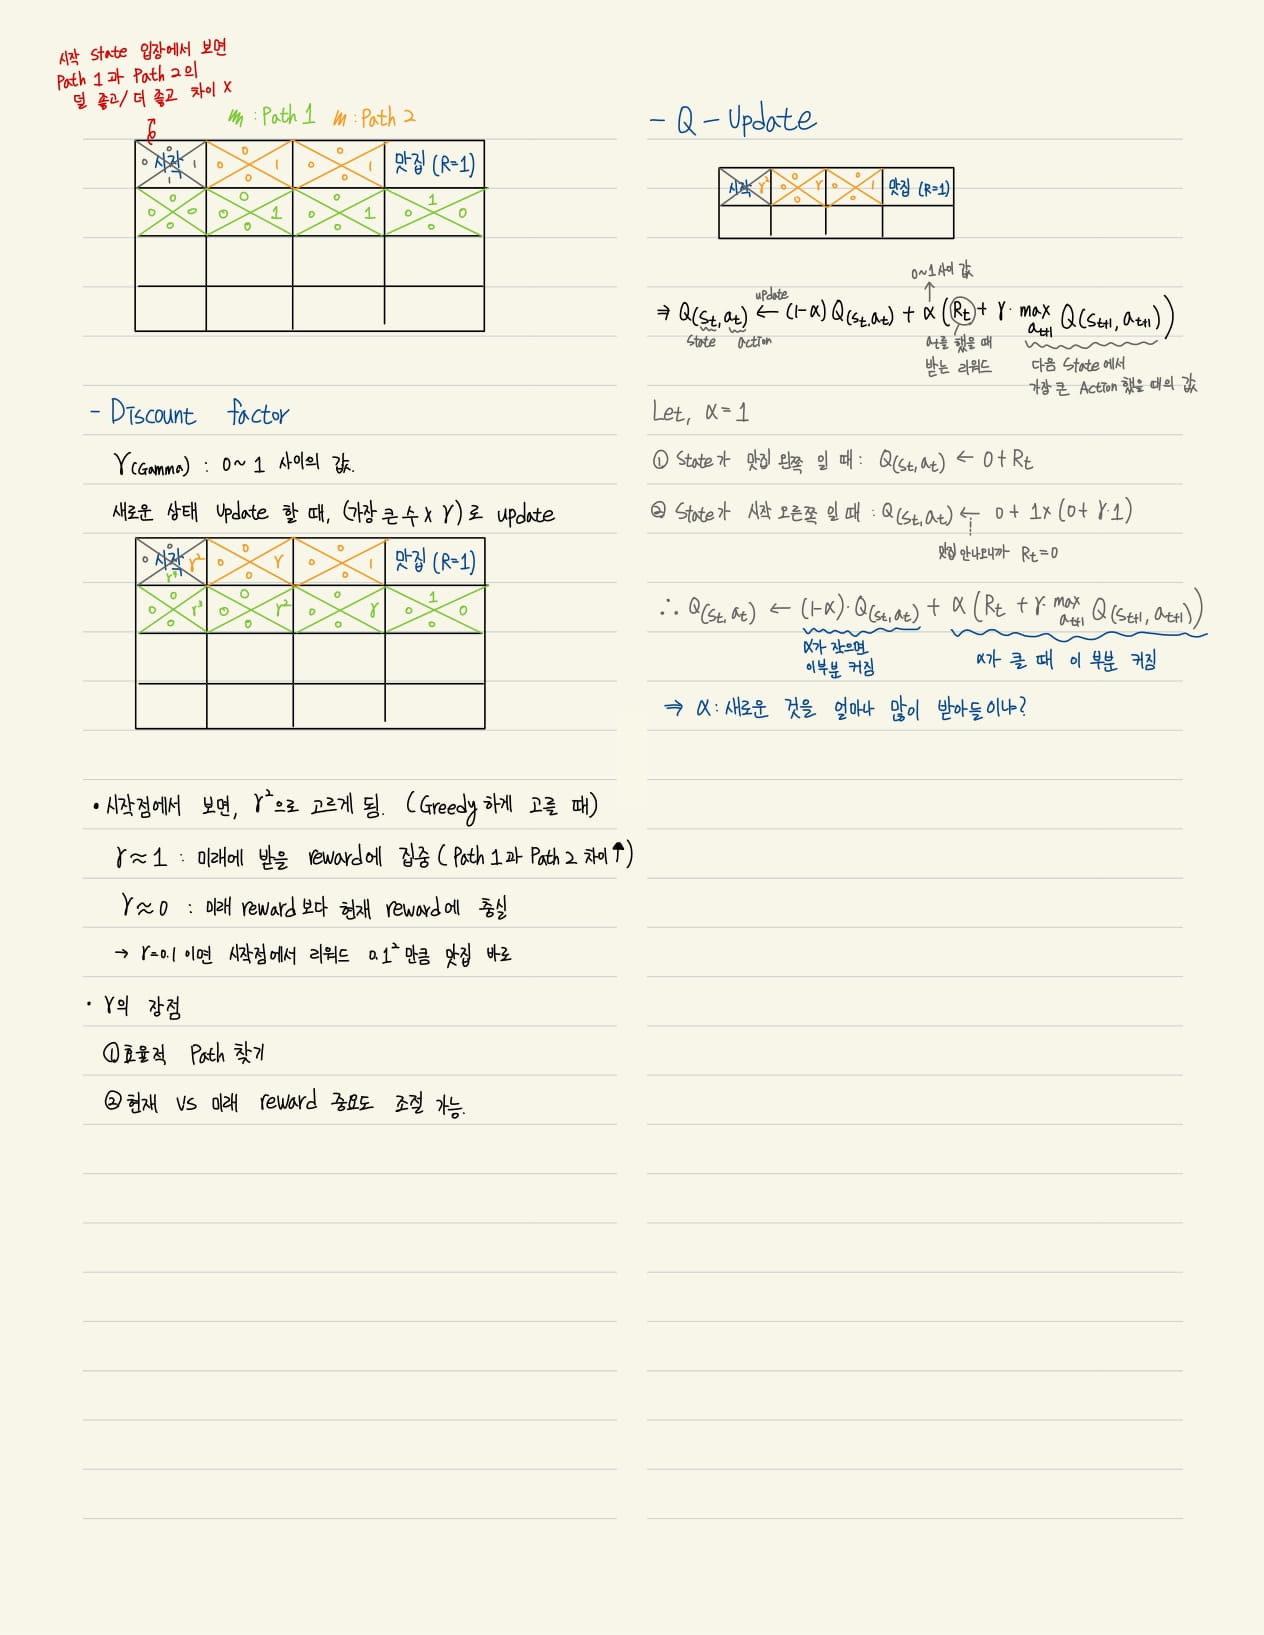 시작 State 입장에서 보면
Path 1과 Path 2의
덜 좋고/ 더 좋고 차이 X
: Path 1 : Path 2
0 시작 1 0 0 1 0 0 0 1 0 맛집 (R=1)
0 1
0 0 0 0 0 0 1 0 0 0 1 0 1 0 0 0
- Discount factor
γ(Gamma) : 0~ 1 사이의 값.
새로운 상태 Update 할 때, (가장 큰 수 x γ)로 update
0 0 시작 γ² 0 0 γ 0 0 0 1 0 맛집 (R=1)
γ⁴
0 0 γ³ 0 0 0 γ² 0 0 0 γ 0 1 0 0 0
• 시작점에서 보면, γ²으로 고르게 됨. (Greedy하게 고를 때)
γ≈1 : 미래에 받을 reward에 집중 (Path 1과 Path 2 차이↑)
γ≈0 : 미래 reward보다 현재 reward에 충실
→ γ=0.1이면 시작점에서 리워드 0.1²만큼 맛집 바로
• γ의 장점
① 효율적 Path 찾기
② 현재 VS 미래 reward 중요도 조절 가능.
- Q - Update
시작 γ² 0 0 γ 0 0 0 1 0 맛집 (R=1)
0~1사이 값
⇒ Q(St, at) ← update (1-α) Q(St, at) + α (Rt + γ· max at+1 Q(St+1, at+1))
State action
at를 했을 때
받는 리워드
다음 State에서
가장 큰 Action 했을 때의 값
Let, α = 1
① State가 맛집 왼쪽 일 때 : Q(St, at) ← 0 + Rt
② State가 시작 오른쪽 일 때 : Q(St, at) ← 0 + 1x (0+ γ·1)
맛집 안나오니까 Rt = 0
∴ Q(St, at) ← (1-α)·Q(St, at) + α (Rt + γ· max at+1 Q(St+1, at+1))
α가 작으면
이부분 커짐
α가 클 때 이 부분 커짐
⇒ α : 새로운 것을 얼마나 많이 받아들이냐?